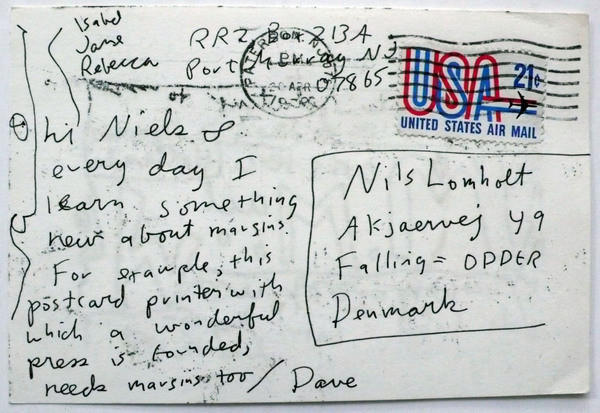 Isabel
Jane
Rebecca
RR2 Box 213A
Port Murray NJ
07865
PATERSON, NJ 075
APR
USA 21¢
UNITED STATES AIR MAIL
Hi Niels &
every day I
learn something
new about margins.
For example, this
postcard printer with
which a wonderful
press is founded,
needs margins too / Dave
Nils Lomholt
Akjaervej 49
Falling = ODDER
Denmark